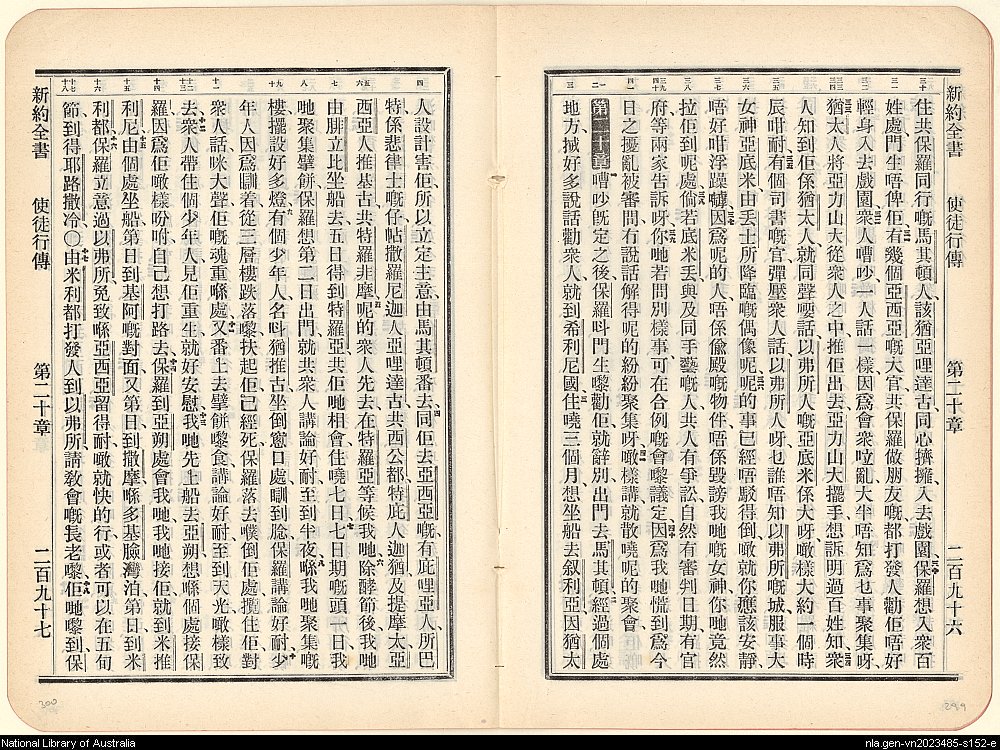 新約全書 使徒行傳 第二十章 二百九十六
住共保羅同行嘅馬其頓人該猶亞哩達古同心擠擁入去戲園保羅想入衆百
姓處門生唔俾佢有幾個亞西亞嘅大官共保羅做朋友嘅都打發人勸佢唔好
輕身入去戲園衆人嘈吵一人話一樣因爲會衆吰亂大半唔知爲乜事聚集呀
猶太人將亞力山大從衆人之中推佢出去亞力山大擺手想訴明過百姓知衆
人知到佢係猶太人就同聲嘤話以弗所人嘅亞底米係大呀噉樣大約一個時
辰咁耐有個司書嘅官彈壓衆人話以弗所人呀乜誰唔知以弗所嘅城服事大
女神亞底米由丢士所降臨嘅偶像呢呢的事已經唔駁得倒噉就你應該安靜
唔好咁浮躁罅因爲呢的人唔係偸殿嘅物件唔係毀謗我哋嘅女神你哋竟然
拉佢到呢處倘若底米丢與及同手藝嘅人共人有爭訟自然有審判日期有官
府等兩家告訴呀你哋若問別樣事可在合例嘅會嚟議定因爲我哋慌到爲今
日之擾亂被審問冇說話解得呢的紛紛聚集呀噉樣講就散嘵呢的聚會
第二十章 嘈吵旣定之後保羅呌門生嚟勸佢就辭別出門去馬其頓經過個處
地方㨢好多說話勸衆人就到希利尼國住嘵三個月想坐船去叙利亞因猶太
人設計害佢所以立定主意由馬其頓番去同佢去亞西亞嘅有庇哩亞人所巴
特係悲律士嘅仔帖撒羅尼迦人亞哩達古共西公都特庇人迦猶及提摩太亞
西亞人推基古共特羅非摩呢的衆人先去在特羅亞等候我哋除酵節後我哋
由腓立比坐船去五日得到特羅亞共佢哋相會住嘵七日七日期嘅頭一日我
哋聚集擘餅保羅想第二日出門就共衆人講論好耐至到半夜喺我哋聚集嘅
樓擺設好多燈有個少年人名呌猶推古坐倒窻口處瞓到腍保羅講論好耐少
年人因爲瞓着從三層樓跌落嚟扶起佢已經死保羅落去噗倒佢處攬住佢對
衆人話咪大聲佢嘅魂重喺處又番上去擘餅嚟食講論好耐至到天光噉樣致
去衆人帶住個少年人見佢重生就好安慰我哋先上船去亞朔想喺個處接保
羅因爲佢噉樣吩咐自己想打路去保羅到亞朔處會我哋我哋接佢就到米推
利尼由個處坐船第日到基阿嘅對面又第日到撒摩喺多基臉灣泊第日到米
利都保羅立意過以弗所免致喺亞西亞留得耐噉就快的行或者可以在五旬
節到得耶路撒冷〇由米利都打發人到以弗所請敎會嘅長老嚟佢哋嚟到保
新約全書 使徒行傳 第二十章 二百九十七
300
299
National Library of Australia
nla.gen-vn2023485-s152-e